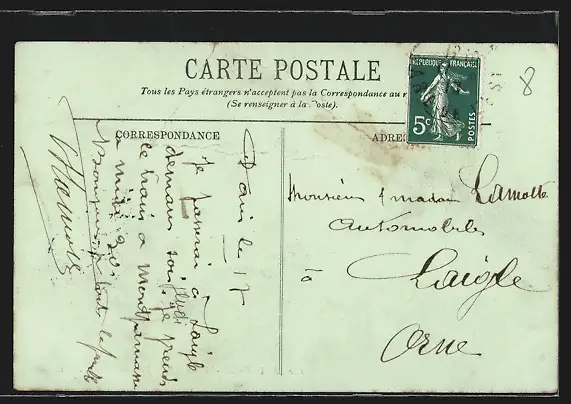 CARTE POSTALE
Tous les Pays étrangers n'acceptent pas la Correspondance au
(Se renseigner à la Poste).
RÉPUBLIQUE FRANÇAISE
5c
POSTES
8
CORRESPONDANCE
ADRES
Paris le 17
Je passerai à Laigle
demain soir
je prends
ce train à Montparnasse
à midi
Bonjour à toute la famille
Monsieur & madame Lamotte
Automobiles
à
Laigle
Orne